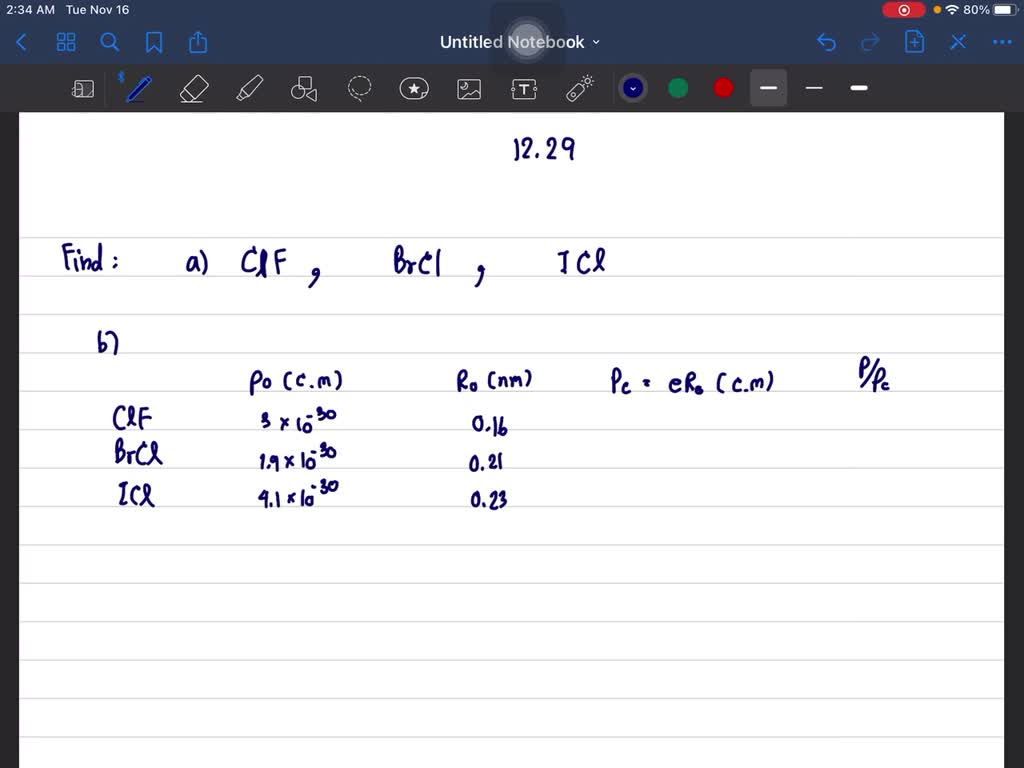 2:34 AM Tue Nov 16 80%
Untitled Notebook
12.29
Find: a) ClF, BrCl, ICl
b)
Po (C.m) Ro (nm) Pc = eRo (C.m) P/Pc
ClF 3 × 10⁻³⁰ 0.16
BrCl 1.9 × 10⁻³⁰ 0.21
ICl 4.1 × 10⁻³⁰ 0.23